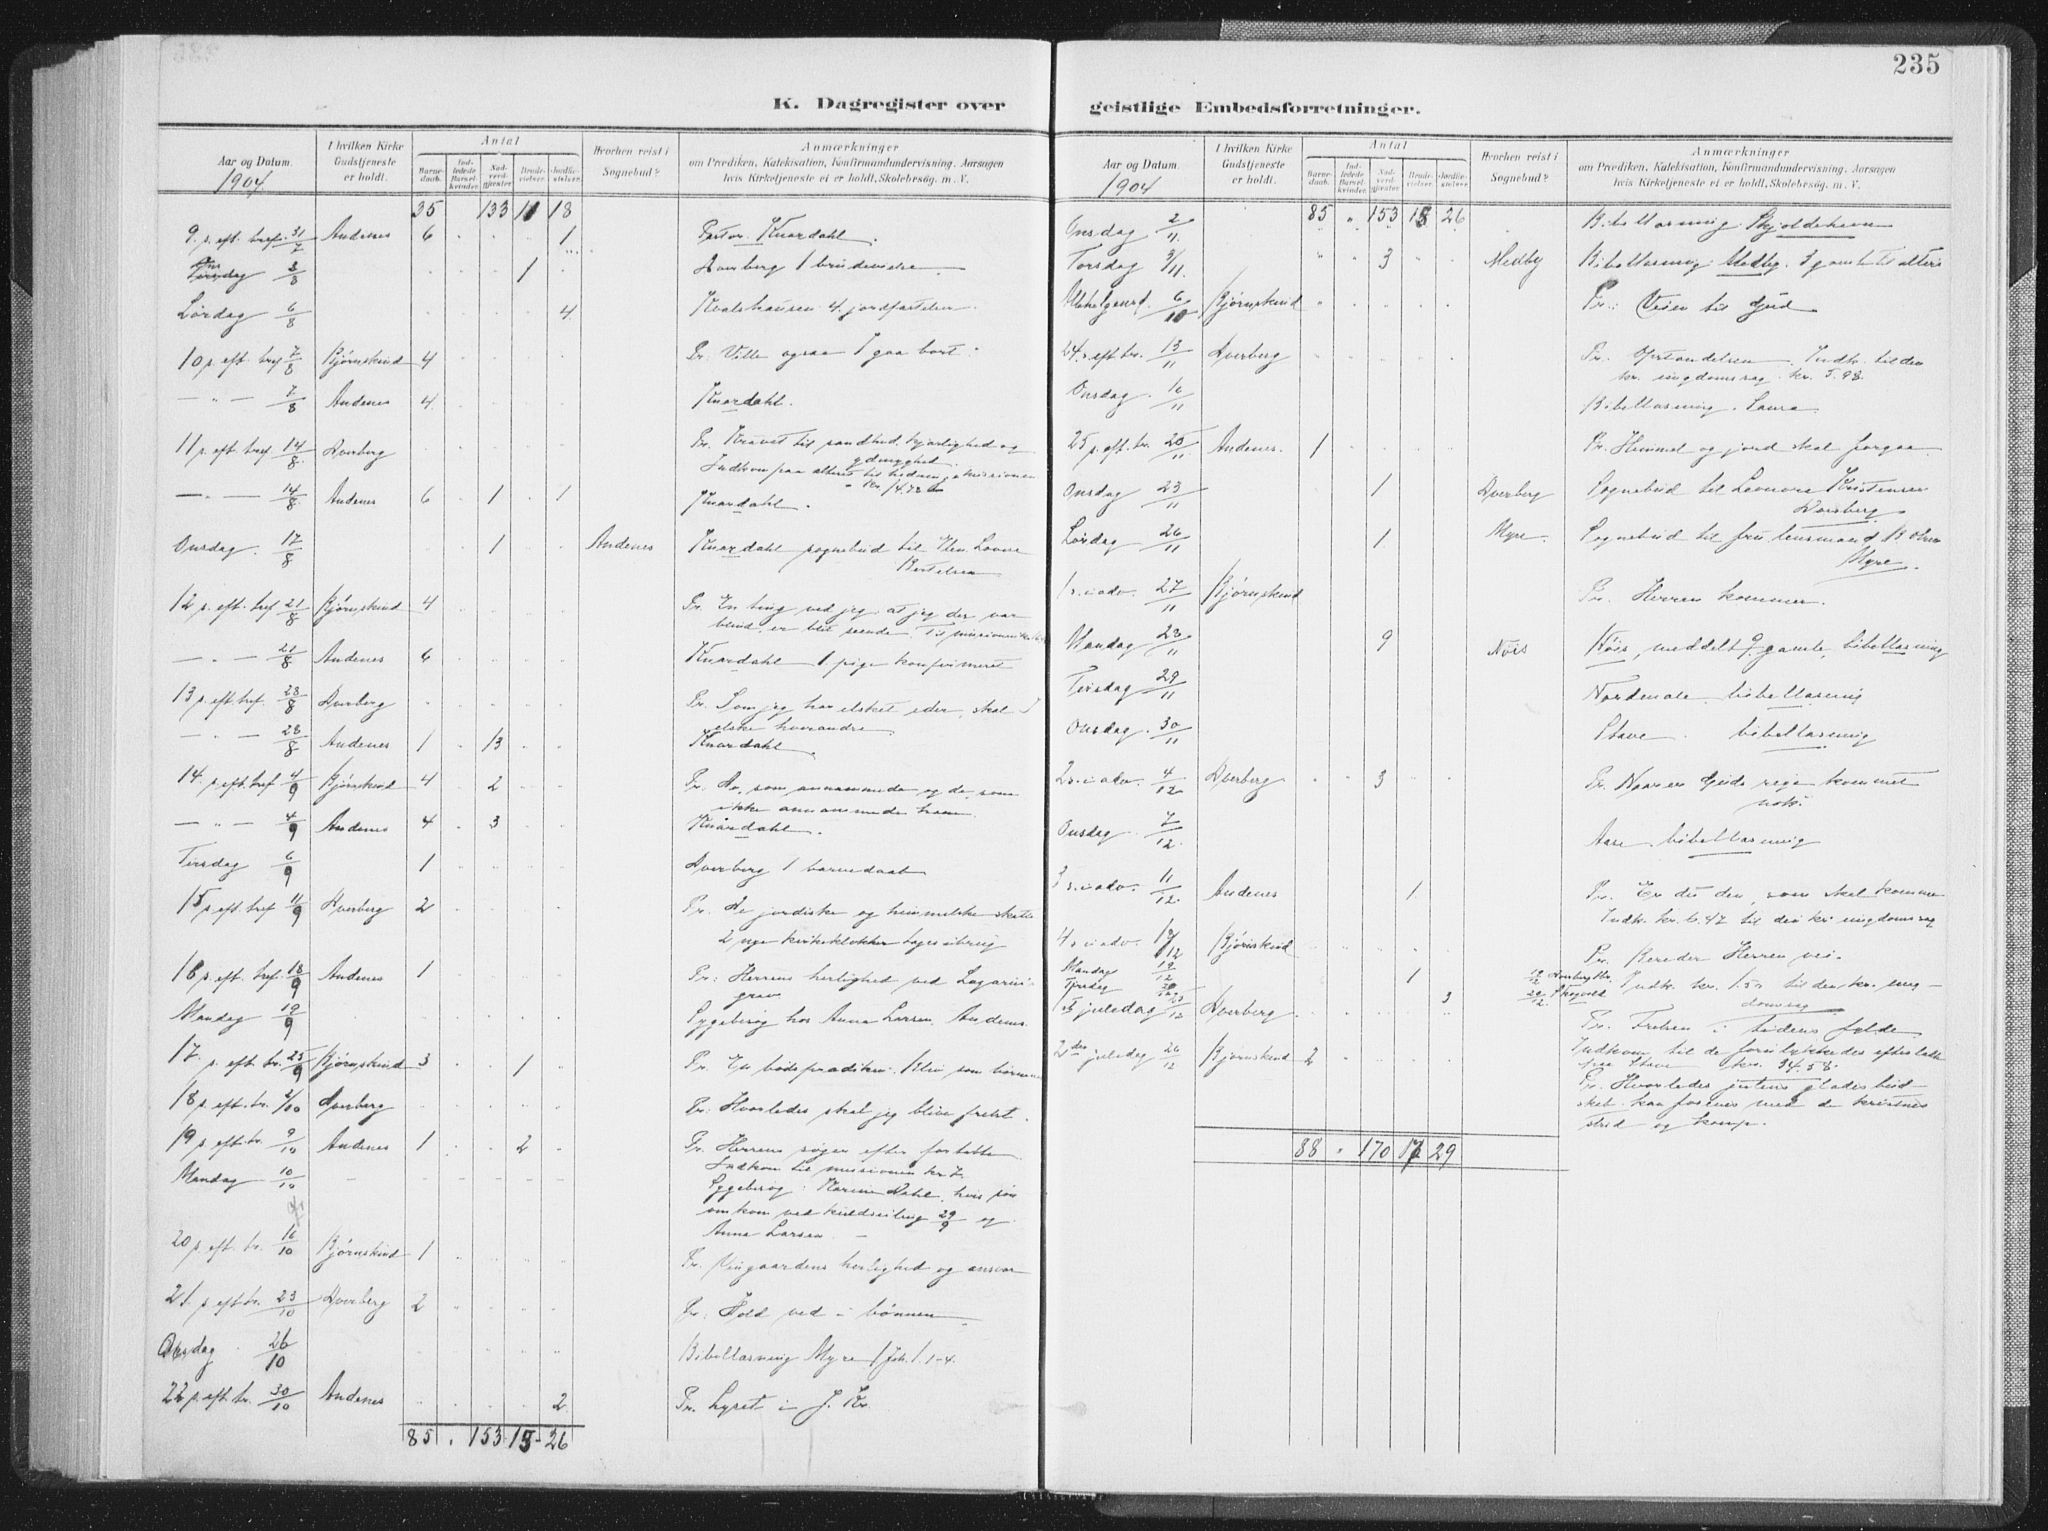 235
K. Dagregister over geistlige Embedsforretninger.
Aar og Datum. 1904
I hvilken Kirke Gudstjeneste er holdt.
Antal
Barnedaab. Indledede Barselkvinder. Nadverdgjester. Brudevielser. Jordfæstelser.
Hvorhen reist i Sognebud?
Anmærkninger
om Prædiken, Katekisation, Konfirmandundervisning, Aarsagen
hvis Kirketjeneste ei er holdt, Skolebesøg, m. V.
35 133 18
9. s. eft. tref. 31/7 Andenes 6 1 Pastor Knardahl.
3/8 1 Dverberg 1 brudevielse
Lördag 6/8 4 4 jordfæstelser
10 s. eft. tref 7/8 Bjørnskind 4 Pr. Ville ogsaa I gaa bort.
— " — 7/8 Andenes 4 Knardahl.
11 s. eft. tref. 14/8 Dverberg Pr. Kravet til sandhed, kjærlighed og
ydmyghed.
Indkom paa alteret til hedningemissionen
Kr. 14.78
— " — 14/8 Andenes 6 1 1 Knardahl.
Onsdag. 17/8 1 Andenes Knardahl sognebud til Lovise
Bertelsen
12 s. eft. tref 21/8 Bjørnskind 4 Pr. En ting ved jeg: at jeg der var
blind, er blit seende. Til missionen
— " — 21/8 Andenes 6 Knardahl 1 pige konfirmeret
13 s. eft. tref. 28/8 Dverberg Pr. Som jeg har elsket eder, skal I
elske hverandre.
— " — 28/8 Andenes 1 13 Knardahl
14. s. eft. tref 4/9 Bjørnskind 4 2 Pr. De, som annammede og de, som
ikke annammede ham
— " — 4/9 Andenes 4 3 Knardahl.
Tirsdag 6/9 1 Dverberg 1 barnedaab
15 s. eft. tref 11/9 Dverberg 2 Pr. De jordiske og himmelske skatte
2 nye kirkeklokker toges i brug
16 s. eft. tref. 18/9 Andenes 1 Pr: Herrens herlighed ved Lazarus'
grav
Mandag 19/9 Sygebesög hos Anna Larsen, Andenes
17. s. eft. tr. 25/9 Bjørnskind 3 1 Pr. En bodsprædiken: Bliv som børnene
18 s. eft. tr. 2/10 Dverberg Pr: Hvorledes skal jeg blive frelst.
19 s. eft. tr. 9/10 Andenes 1 2 Pr. Herrens søgen efter fortabte
Indkom til missionen kr. 7.
Mandag 10/10 Sygebesøg: Karine Dahl, hvis søn
omkom ved kuldseiling 29/9 og
Anna Larsen
20 s. eft. tr. 16/10 Bjørnskind 1 Pr. Vingaardens herlighed og ansvar
21. s. eft. tr. 23/10 Dverberg 2 Pr: Hold ved i bönnen
Onsdag 26/10 Bibellæsning Myre 1 Joh. 1. 1-4.
22 s. eft. tr. 30/10 Andenes 2 Pr. Lyset i J. Kr.
85 " 153 26
Aar og Datum. 1904
I hvilken Kirke Gudstjeneste er holdt.
Antal
Barnedaab. Indledede Barselkvinder. Nadverdgjester. Brudevielser. Jordfæstelser.
Hvorhen reist i Sognebud?
Anmærkninger
om Prædiken, Katekisation, Konfirmandundervisning, Aarsagen
hvis Kirketjeneste ei er holdt, Skolebesøg, m. V.
85 " 153 26
Onsdag 2/11 Bibellæsning Skjoldehavn
Torsdag 3/11 3 Medby Bibellæsning: Medby. 3 gamle til alters
Allehelgensd. 6/10 Bjørnskind Pr: Veien til Gud
24. s. eft. tr. 13/11 Dverberg Pr. Opstandelsen. Indk. til den
kr. ungdomssag kr. 5.98.
Onsdag. 16/11 Bibellæsning.
25 s. eft. tr. 20/11 Andenes. 1 Pr. Himmel og jord skal forgaa
Onsdag 23/11 1 Dverberg Sognebud til Leonore Kristensen
Dverberg
Lørdag 26/11 1 Myre. Sognebud til fru lensmand
Myre.
1 s. i adv. 27/11 Bjørnskind Pr. Herren kommer.
Mandag 28/11 9 Nöis Nöis, meddelt 9 gamle, bibellæsning
Tirsdag 29/11 bibellæsning
Onsdag. 30/11 Stave. bibellæsning
2 s. i adv. 4/12 Dverberg 3 Pr. Naar er Guds rige kommet
nok.
Onsdag 7/12 Aase bibellæsning
3 s. i adv. 11/12 Andenes 1 Pr. Er du den, som skal komme
Indk. kr. 6.47 til den kr. ungdomssag
4 s. i adv. 18/12 Bjørnskind Pr. Bereder Herren vei.
Mandag 19/12 1 Indk. kr. 1.50 til den kr. ung-
Tirsdag 20/12 3 domssag
1ste juledag 25/12 Dverberg Pr. Frelsen i tidens fylde
Indkom til de forulykkedes efterlatte
paa Stave kr. 34.58.
2den juledag 26/12 Bjørnskind 2 Pr. Hvorledes julens gladesbud-
skab kan forenes med de kristnes
strid og kamp.
88 " 170 29